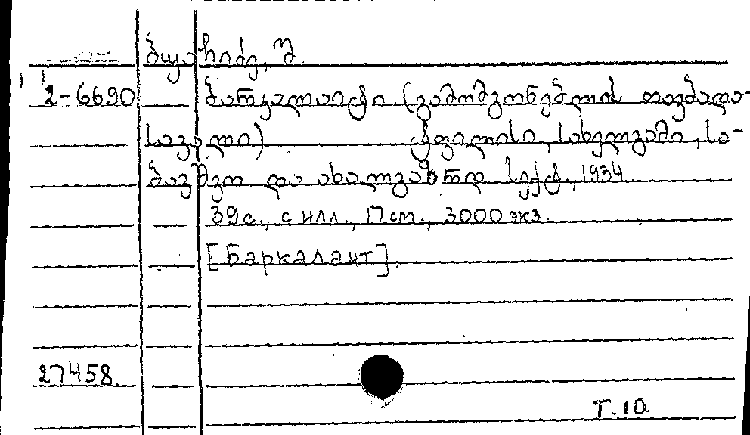 მყარიძე, შ.
2-6690 ბარკალაიტი (გამომგონებლის თავგადა-
სავალი) ტფილისი, სახელგამი, სა-
ბავშვო და ახალგაზრდ. სექტ., 1934.
39 с., с илл., 17 см., 3000 экз.
[Баркалаит].
27458.
Т. 10